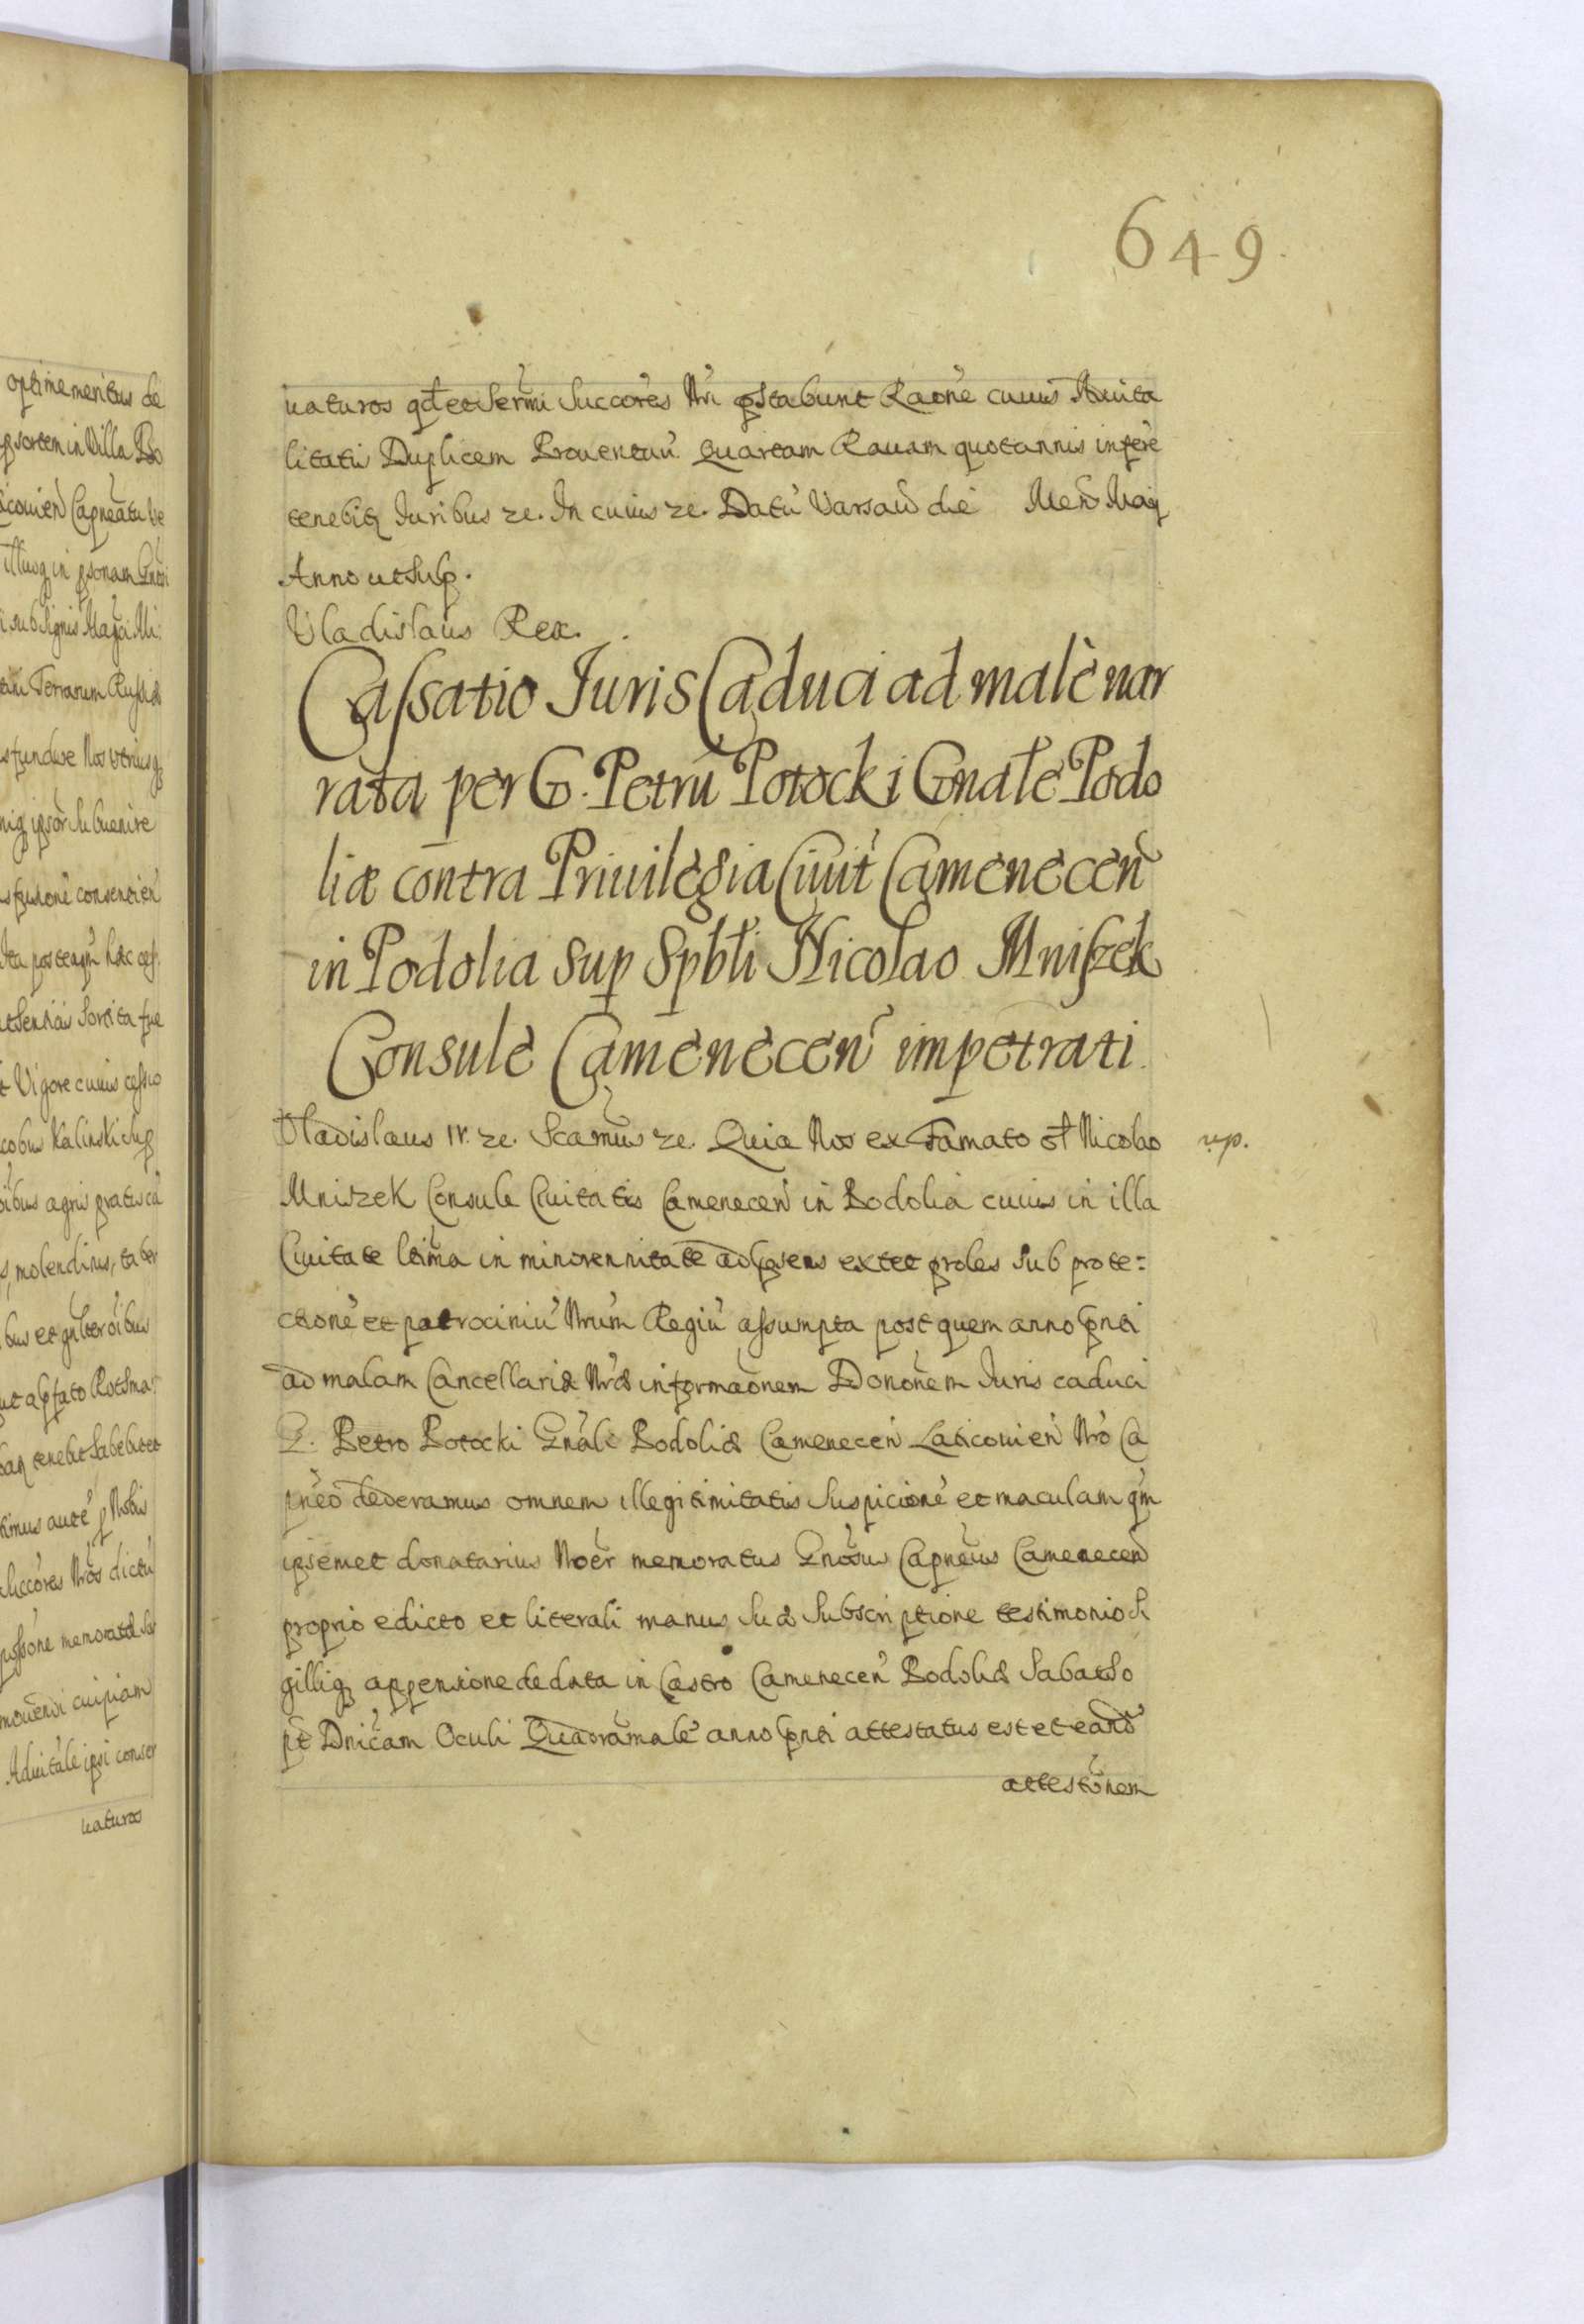 649
uaturos qd et Sermi Succores Nri pstabunt Raone cuius Aduita
litatis Duplicem Prouentuu Quartam Rauam quotannis inferre
tenebitq Juribus ze. In cuius ze. Datu Varsau die Mens Maij
Anno ut Sup.
Vladislaus Rex.
Cassatio Juris Caduci ad malè nar
rata per G. Petrũ Potocki Gnałe Podo
liæ contra Priuilegia Ciuit Camenecen̄
in Podolia sup Spbłi Nicolao Mniszek
Consule Camenecen̄ impetrati.
Vladislaus IV. ze. Scamus ze. Quia Nos ex Famato oł Nicolao
rep.
Mniszek Consule Ciuitatis Camenecen̄ in Podolia cuius in illa
Ciuitate ltima in minorennitate ad psens extet proles sub prote:
ctionē et patrociniū Nrūm Regiū assumpta post quem anno pnti
ad malam Cancellariæ Nræ informaōnem Donōnem Juris caduci
G. Petro Potocki Gnāli Podoliæ Camenecen̄ Laticouien̄ Nrō Ca
pneō dederamus omnem illegitimitatis suspicionē et maculam qm̄
ipsemet donatarius Noēr memoratus Gnōsus Capneūs Camenecen̄
proprio edicto et literali manus suæ subscriptione testimonio Si
gilliq appensione de data in Castro Camenecen̄ Podoliæ Sabatho
pt Dnicam Oculi Quadramalē anno pnti attestatus est et eandō
attestōnem
optime meritus de
sortem in Villa Bo
Capneatu
illiusq in psonam Gnosi
sub Signis Magci Mi:
Terrarum Russiæ
fundere Nos utriusq
ipsor subuenire
consentien
Ita posteaqm hæc ces
sortita fue
Vigore cuius cessio
Kalinski Sup
oibus agris pratis cū
molendinis, taber
bus et gnlter oibus
Rotsma
tenebit habebit et
timus autē p Nobis
Succores Nros dictū
possone memoratæ
mouendi cuipiam
Aduitale ipsi conser
uaturos